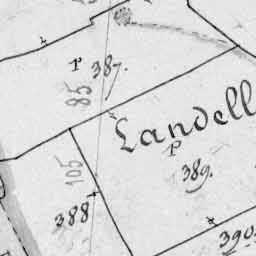 P 387.
85
Landell
P
389.
105
388
390.